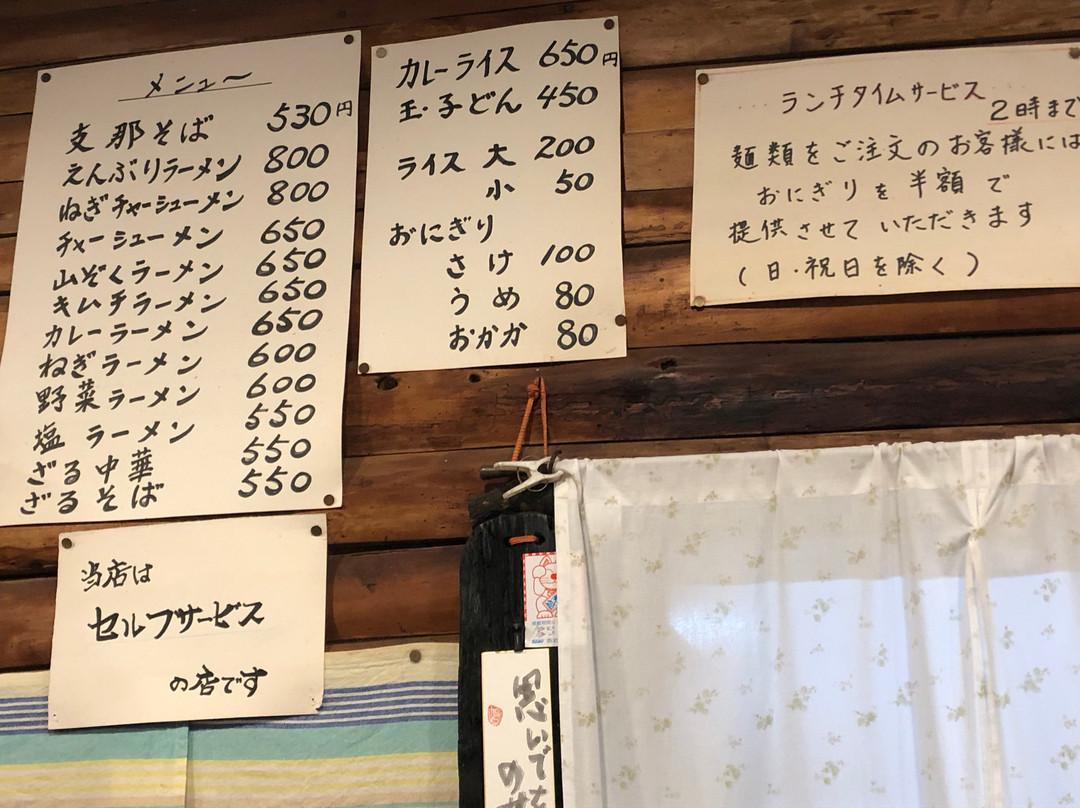 メニュ〜
支那そば 530円
えんぶりラーメン 800
ねぎチャーシューメン 800
チャーシューメン 650
山ぞくラーメン 650
キムチラーメン 650
カレーラーメン 650
ねぎラーメン 600
野菜ラーメン 600
塩ラーメン 550
ざる中華 550
ざるそば 550
カレーライス 650円
玉・子どん 450
ライス 大 200
小 50
おにぎり
さけ 100
うめ 80
おかか 80
ランチタイムサービス
2時まで
麺類をご注文のお客様には
おにぎりを半額で
提供させていただきます
(日・祝日を除く)
当店は
セルフサービス
の店です
思いで